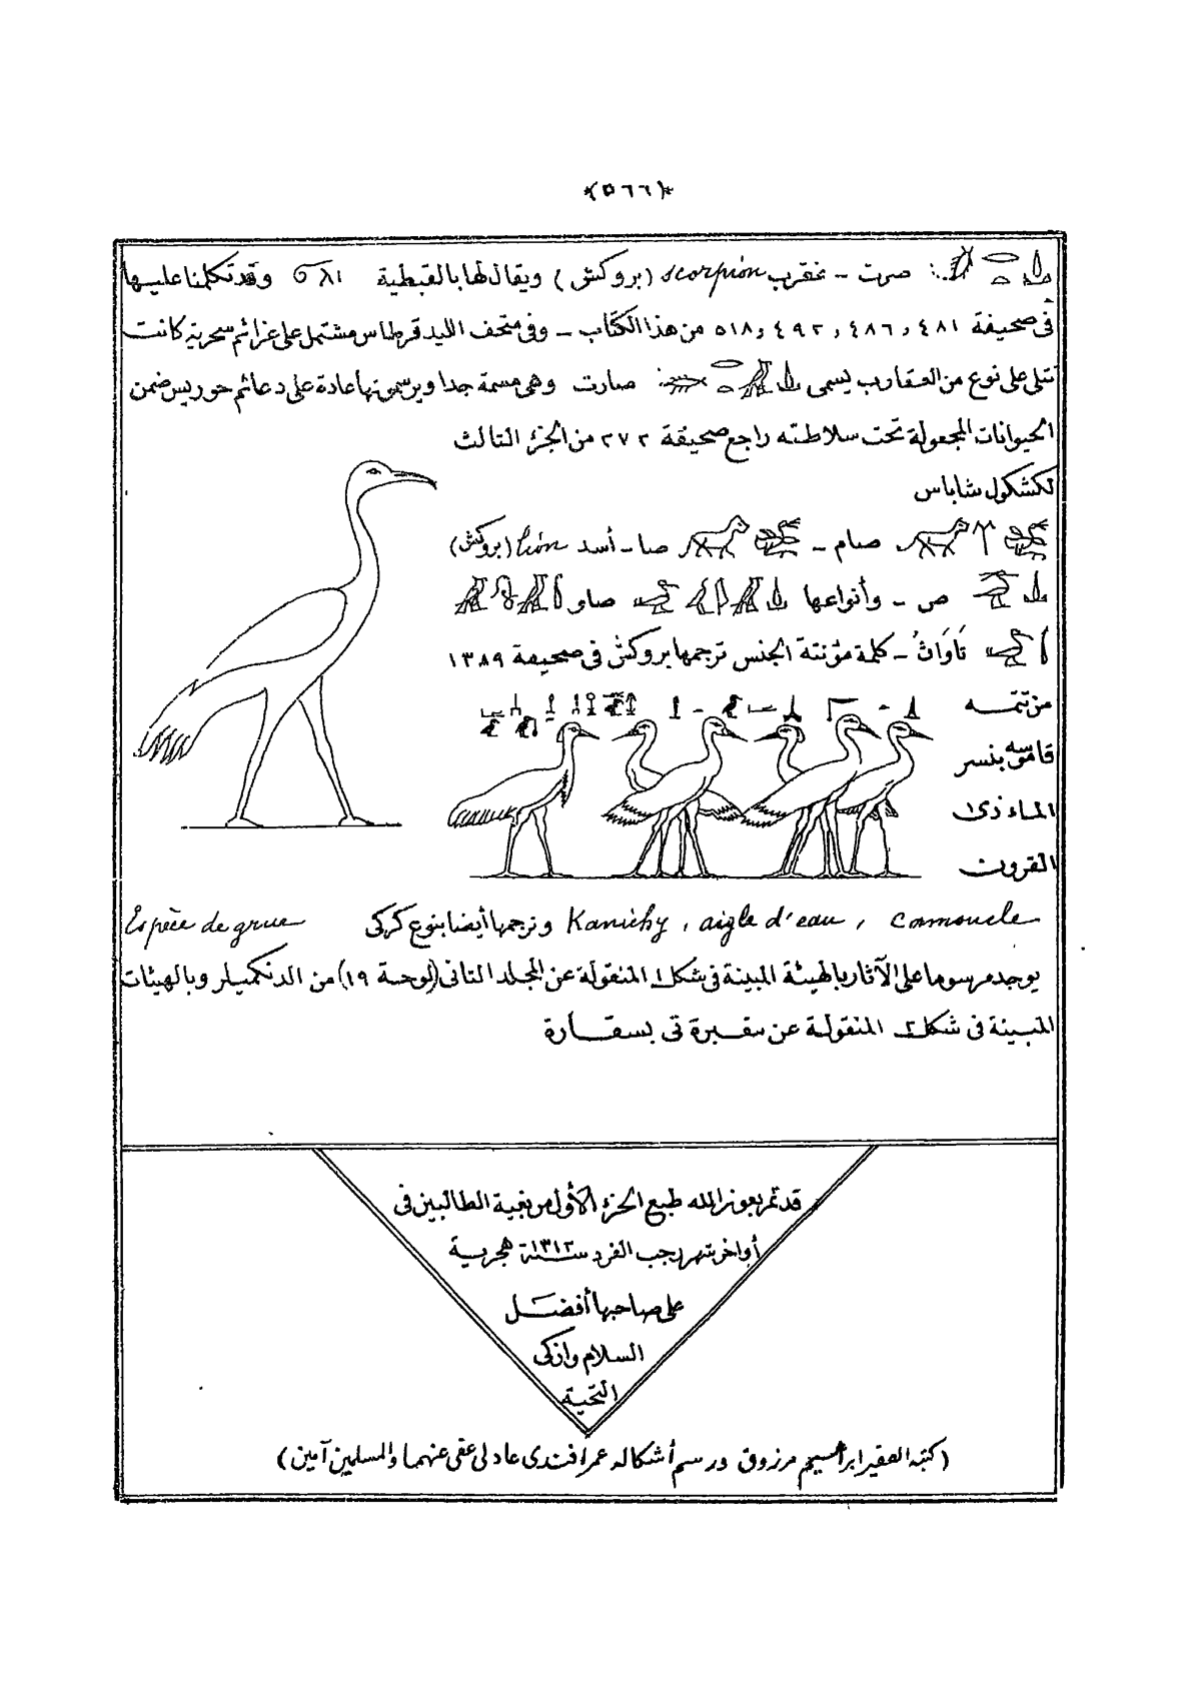 ﴿٥٦٦﴾
صرت - عقرب scorpion (بروكش) ويقال لها بالقبطية وقد تكلمنا عليها
فى صحيفة ٤٨١ و ٤٨٦ و ٤٩٢ و ٥١٨ من هذا الكتاب - وفى متحف الليد قرطاس مشتمل على عزائم سحرية كانت
تتلى على نوع من العقارب يسمى صارت وهى مسمة جدا ويرسمونها عادة على دعائم حوريس ضمن
الحيوانات المجعولة تحت سلاطته راجع صحيفة ٢٧٢ من الجزء الثالث
لكشكول شاباس
صام - صا - أسد lion (بروكش)
ص - وأنواعها صاو
تَاوَاتُ - كلمة مؤنثة الجنس ترجمها بروكش فى صحيفة ١٣٨٩
من تتمه
قاموسه بنسر
الماء ذى
القرون
Kanichy, aigle d'eau, camoucle وترجمها أيضا بنوع كركى Espèce de grue
يوجد مرسوما على الآثار بالهيئة المبينة فى شكل ١ المنقولة عن المجلد الثانى (لوحة ١٩) من الدنكميلر وبالهيئات
المبينة فى شكل ٢ المنقولة عن مقبرة تى بسقارة
قد تم بعون الله طبع الجزء الأول من بغية الطالبين فى
أواخر شهر رجب الفرد سنة ١٣١٢ هجرية
على صاحبها أفضل
السلام وازكى
التحية
(كتبه الفقير ابراهيم مرزوق ورسم أشكاله عمر افندى عادلى عفى عنهما والمسلمين آمين)